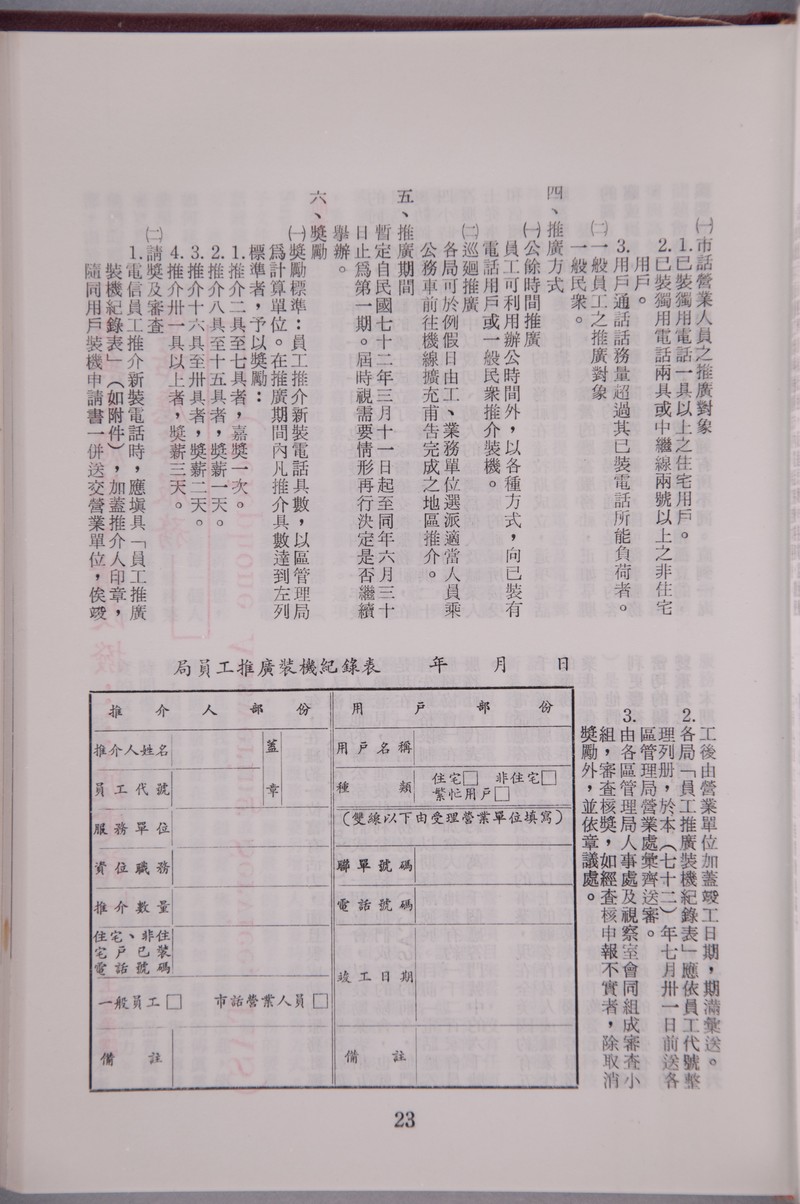 ㈠市話營業人員之推廣對象
1.已裝獨用電話一具以上之住宅用戶。
2.已裝獨用電話兩具或中繼線兩號以上之非住宅
用戶。
3.用戶通話話務量超過其已裝電話所能負荷者。
㈡一般員工之推廣對象
一般民衆。
四、推廣方式
㈠公餘時間推廣
員工可利用辦公時間外,以各種方式,向已裝有
電話用戶或一般民衆推介裝機。
㈡巡廻推廣
各局可於例假日由工、業務單位選派適當人員乘
公務車前往機線擴充甫告完成之地區推介。
五、推廣期間
暫定自民國七十二年三月十一日起至同年六月三十
日止爲第一期。屆時視需要情形再行決定是否繼續
舉辦。
六、獎勵
㈠獎勵標準:員工推介新裝電話具數,以區管理局
爲計算單位。在推廣期間內凡推介具數達到左列
標準者,予以獎勵:
1.推介二具至七具者,嘉獎一次。
2.推介八具至十五具者,獎薪一天。
3.推介十六具至卅具者,獎薪二天。
4.推介卅一具以上者,獎薪三天。
㈡請獎及審查
1.電信員工推介新裝電話時,應塡具「員工推廣
裝機紀錄表」(如附件),加蓋推介人印章,
隨同用戶裝機申請書一併送交營業單位,俟竣
工後由營業單位加蓋竣工日期,期滿彙送。
2.各局「員工推廣裝機紀錄表」應依員工代號整
理列册,於本(七十二)年七月卅一日前送各
區管理局營業處彙齊送審。
3.由各區管理局人事處及視察室會同組成審查小
組,審查核獎,如經查核申報不實者,除取消
獎勵外,並依章議處。
局員工推廣裝機紀錄表 年 月 日
推介人部份
用戶部份
推介人姓名
蓋章
用戶名稱
員工代號
種類
住宅□ 非住宅□
繁忙用戶□
服務單位
(雙線以下由受理營業單位填寫)
資位職務
聯單號碼
推介數量
電話號碼
住宅、非住
宅戶已裝
電話號碼
竣工日期
一般員工□ 市話營業人員□
備註
備註
23